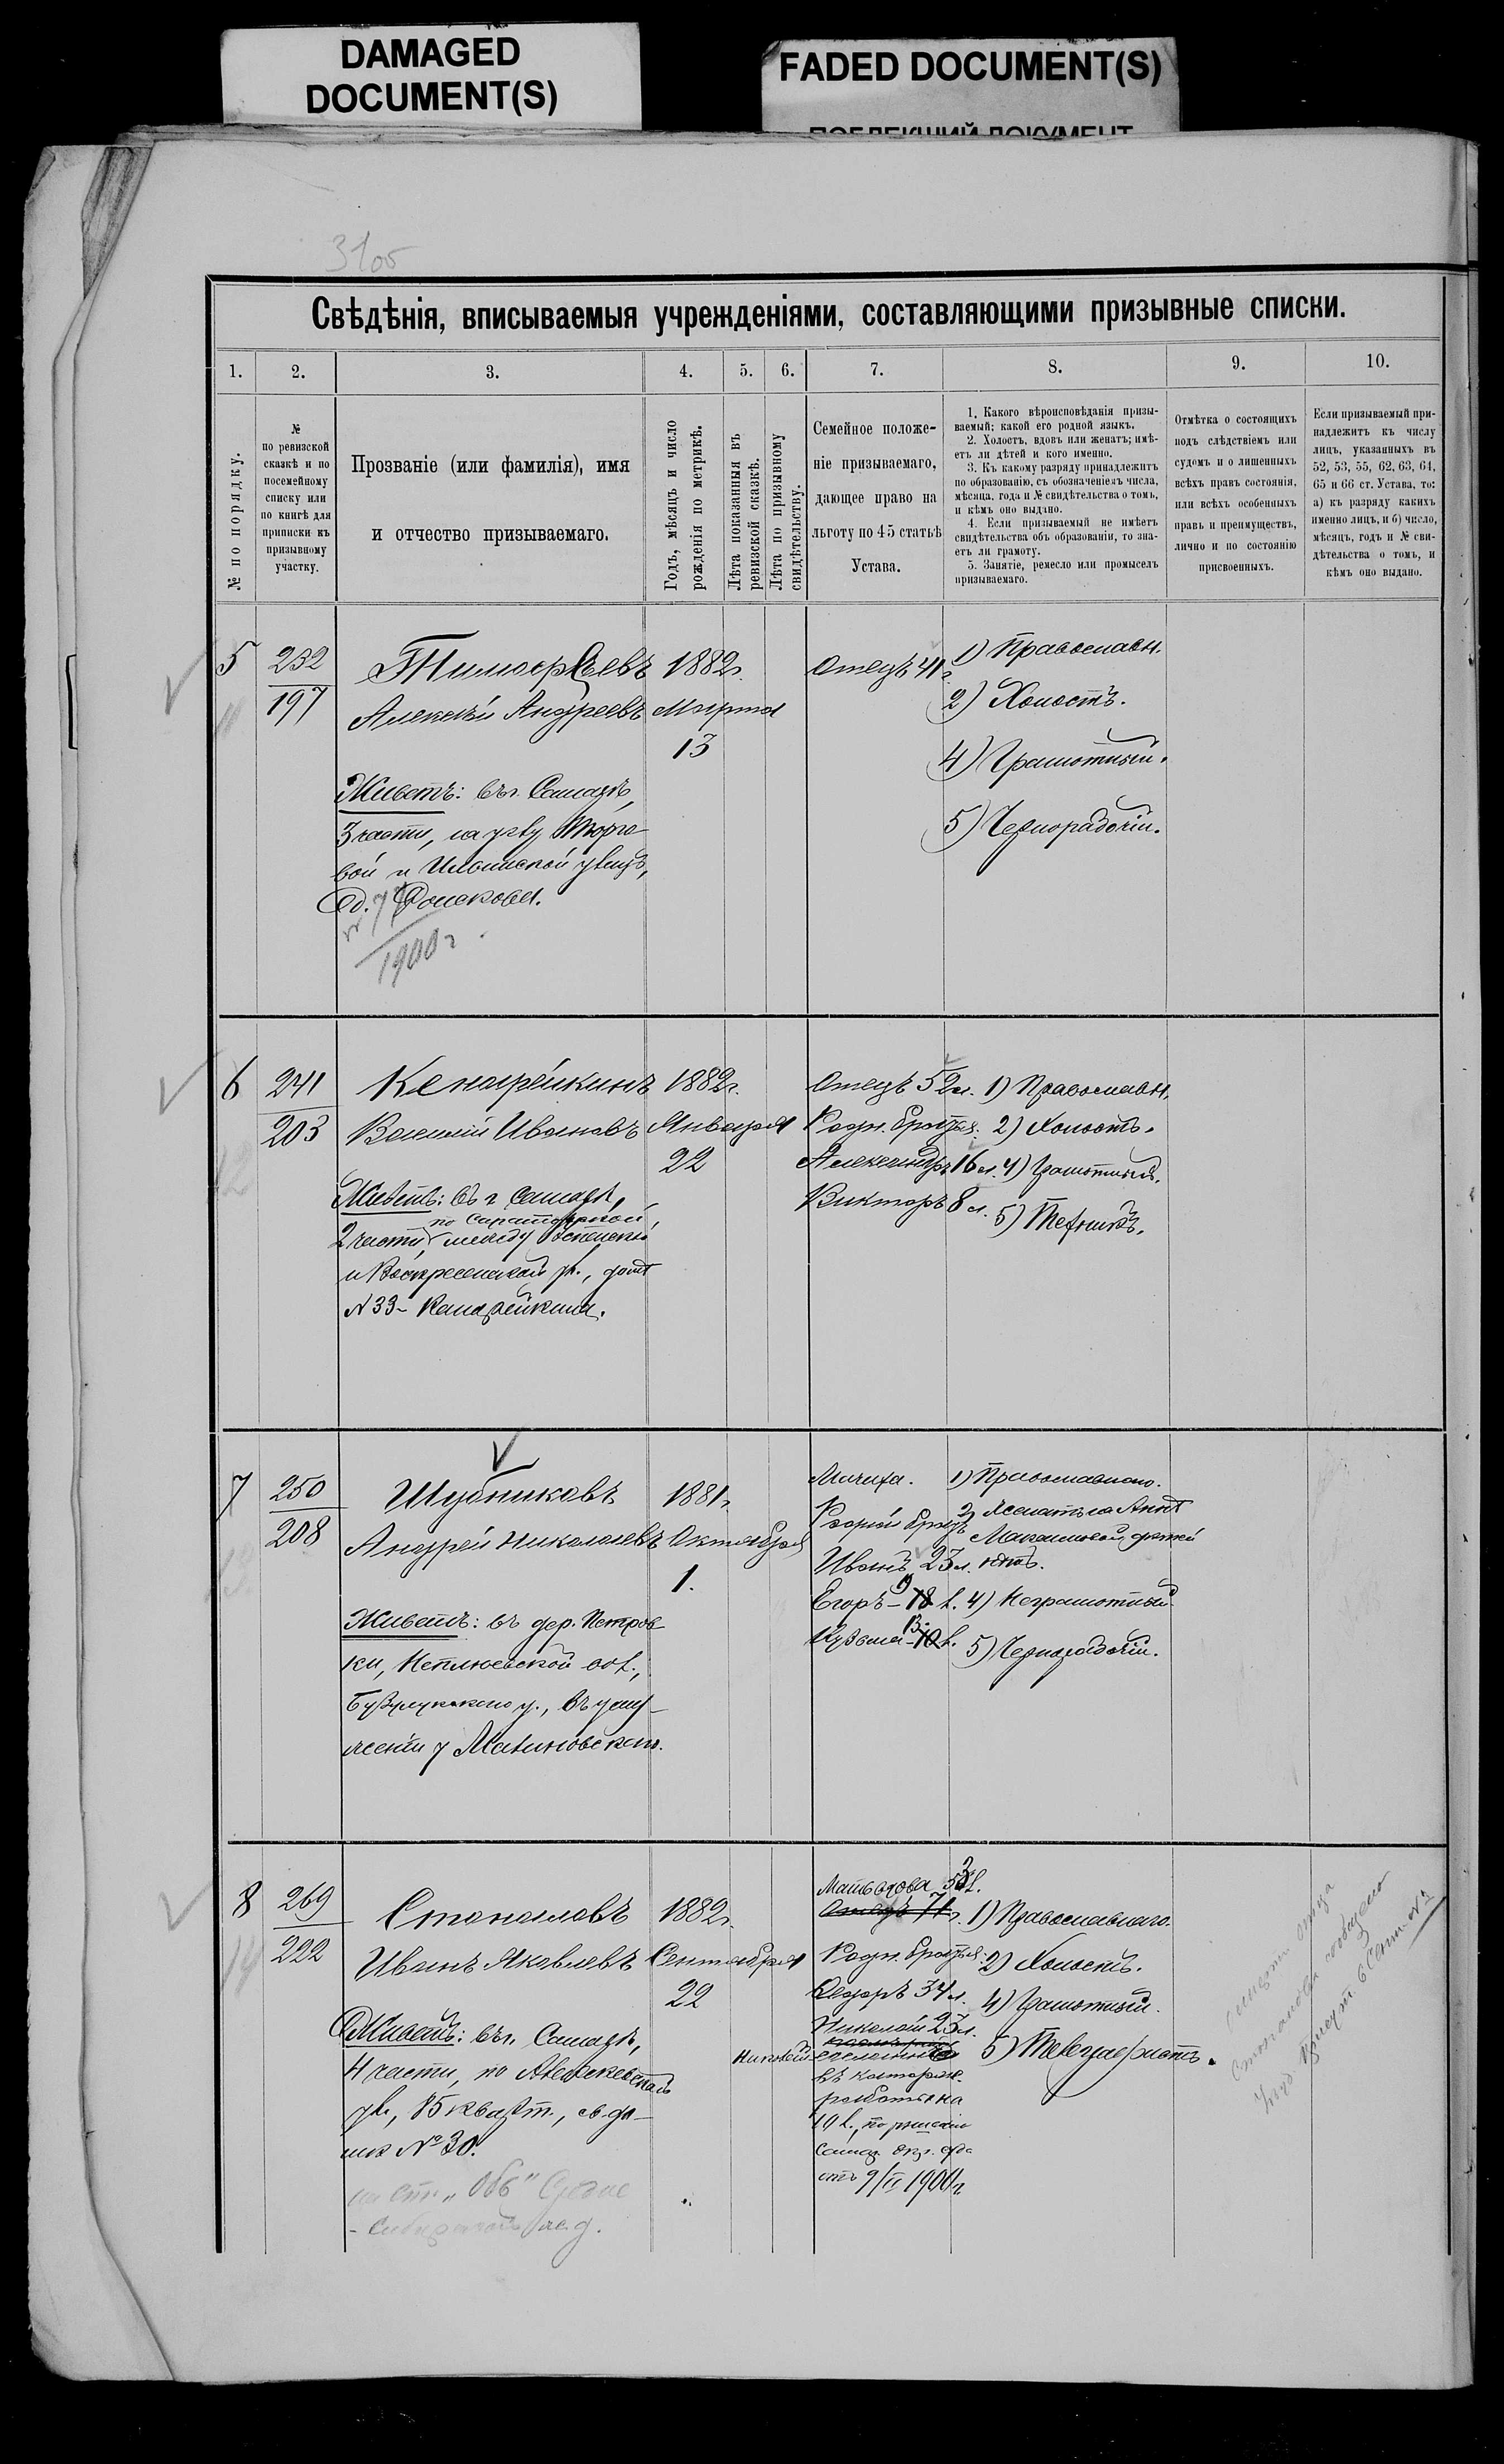 DAMAGED
DOCUMENT(S)
FADED DOCUMENT(S)
ПОБЛЕКШИЙ ДОКУМЕНТ
31об
Свѣдѣнія, вписываемыя учрежденіями, составляющими призывные списки.
1.
2.
3.
4.
5.
6.
7.
8.
9.
10.
№ по порядку.
№
по ревизской
сказкѣ и по
посемейному
списку или
по книгѣ для
приписки къ
призывному
участку.
Прозваніе (или фамилія), имя
и отчество призываемаго.
Годъ, мѣсяцъ и число
рожденія по метрикѣ.
Лѣта показанныя въ
ревизской сказкѣ.
Лѣта по призывному
свидѣтельству.
Семейное положе-
ніе призываемаго,
дающее право на
льготу по 45 статьѣ
Устава.
1. Какого вѣроисповѣданія призы-
ваемый; какой его родной языкъ.
2. Холостъ, вдовъ или женатъ; имѣ-
етъ ли дѣтей и кого именно.
3. Къ какому разряду принадлежитъ
по образованію, съ обозначеніемъ числа,
мѣсяца, года и № свидѣтельства о томъ,
и кѣмъ оно выдано.
4. Если призываемый не имѣетъ
свидѣтельства объ образованіи, то зна-
етъ ли грамоту.
5. Занятіе, ремесло или промыселъ
призываемаго.
Отмѣтка о состоящихъ
подъ слѣдствіемъ или
судомъ и о лишенныхъ
всѣхъ правъ состоянія,
или всѣхъ особенныхъ
правъ и преимуществъ,
лично и по состоянію
присвоенныхъ.
Если призываемый при-
надлежитъ къ числу
лицъ, указанныхъ въ
52, 53, 55, 62, 63, 64,
65 и 66 ст. Устава, то:
а) къ разряду какихъ
именно лицъ, и б) число,
мѣсяцъ, годъ и № сви-
дѣтельства о томъ, и
кѣмъ оно выдано.
5
232
197
11
Тимофеевъ
Алексѣй Андреевъ
1882г.
Марта
13
Живетъ: въ г. Самарѣ,
3 части, на углу Торго-
вой и Ильинской улицъ,
д.
1900г.
Отецъ 41г.
1) Православн.
2) Холостъ.
4) Грамотный.
5) Чернорабочій.
6
241
203
12
Канарейкинъ
Василій Ивановъ
1882г.
Января
22
Живетъ: въ г. Самарѣ,
по Саратовской,
2 части, между
и Воскресенской ул., домъ
№ 33 - Канарейкина.
Отецъ 52л.
Родн. братья:
Александръ 16л.
Викторъ 8л.
1) Православн.
2) Холостъ.
4) Грамотный.
5) Техникъ.
7
250
208
Шубниковъ
Андрей Николаевъ
1881г.
Октября
1.
Живетъ: въ дер. Петров-
ки, Неплюевской вол.,
Бузулукскаго у., въ услу-
женіи у Малиновскаго.
Мачиха.
Родной братъ
Иванъ 23л.
Егоръ - 19 л.
Кузьма - 13 л.
1) Православнаго.
2) Женатъ на Аннѣ
дѣтей
нѣтъ.
4) Неграмотный.
5) Чернорабочій.
8
269
222
14
Стоналовъ
Иванъ Яковлевъ
1882г.
Сентября
22
Живетъ: въ г. Самарѣ,
4 части, по Алексѣевской
ул., 85 кварт., въ до-
мѣ № 30.
на ст. „Обь" Средне
- Сибирской ж.д.
Мать вдова
Отецъ 71г.
Родн. братья:
Федоръ 34л.
Николай 23л.
Николай
въ каторжн.
работы на
10 л., по рѣшенію
Самар. окр. суда
отъ 9/II 1900г
1) Православнаго.
2) Холостъ.
4) Грамотный.
5) Телеграфистъ.